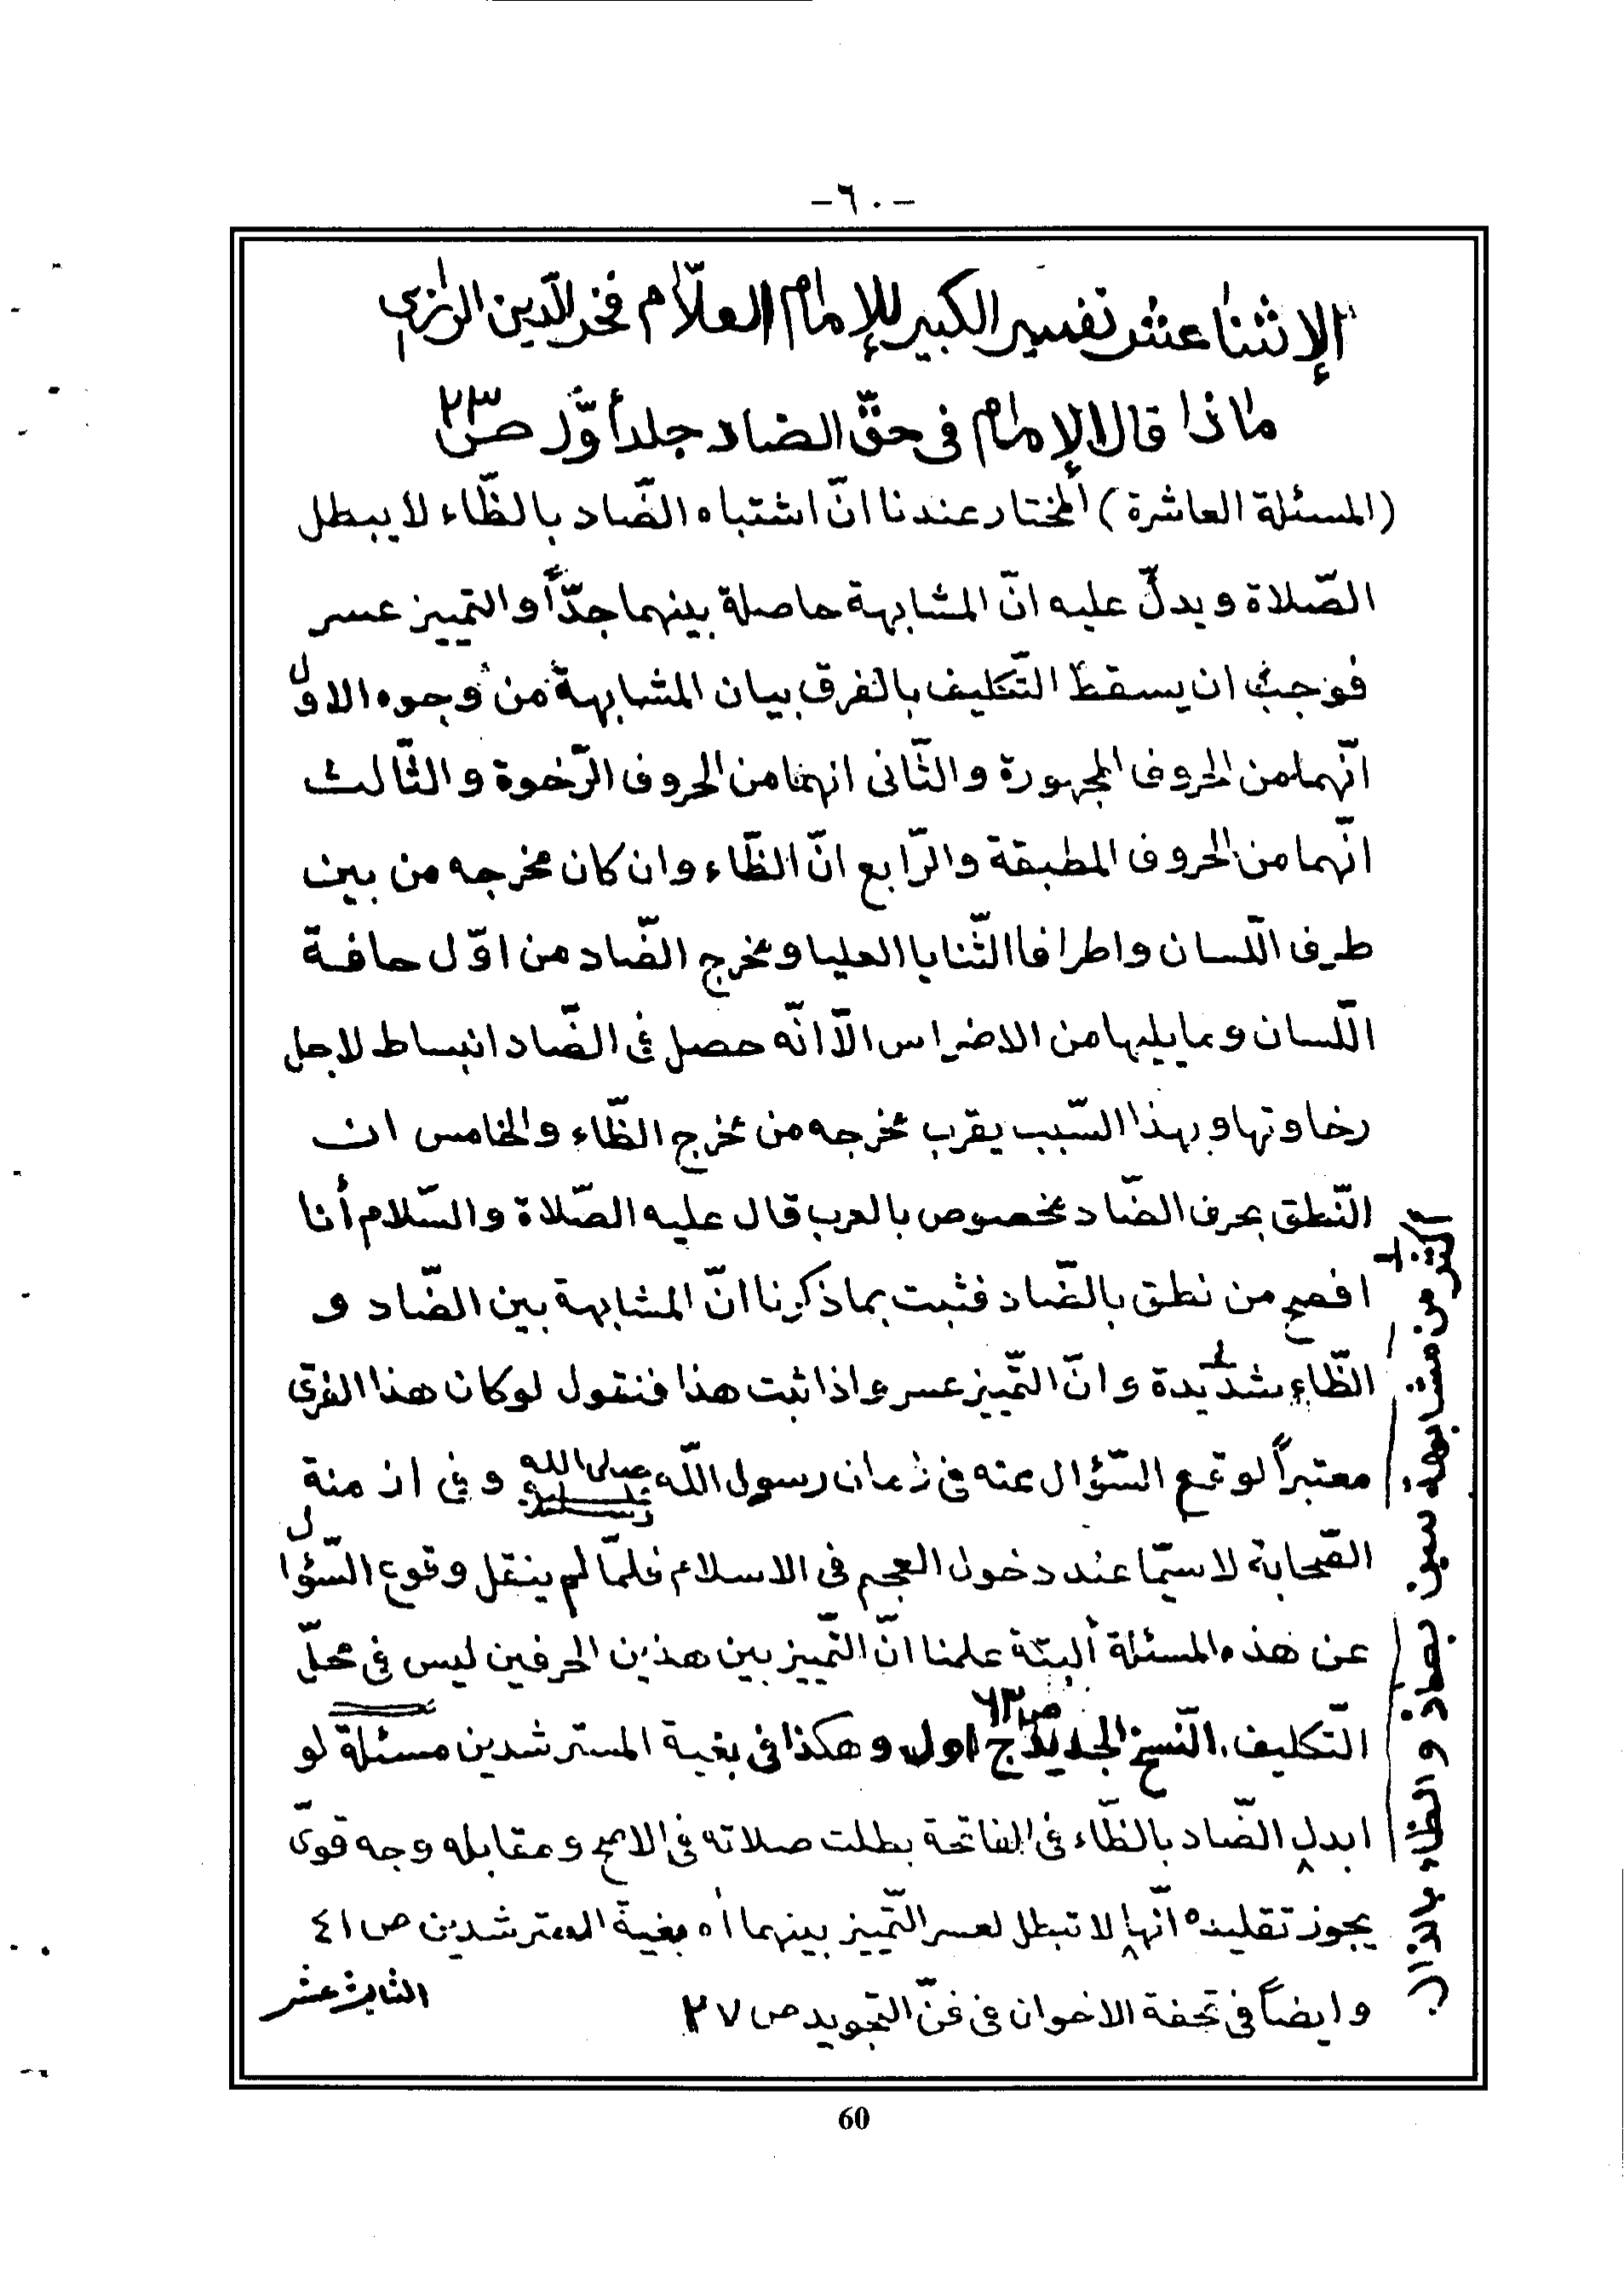 -٦٠-
الإثنا عشر تفسير الكبير للإمام العلّام فخر الدّين الرّازي
ماذا قال الإمام في حقّ الضاد جلد أوّل ص ٢٣
(المسئلة العاشرة) المختار عندنا انّ اشتباه الضّاد بالظّاء لا يبطل
الصّلاة ويدلّ عليه انّ المشابهة حاصلة بينهما جدّاً والتمييز عسر
فوجب ان يسقط التّكليف بالفرق بيان المشابهة من وجوه الاوّل
انّهما من الحروف المجهورة والثّانى انهما من الحروف الرّخوة والثّالث
انّهما من الحروف المطبقة والرّابع انّ الظّاء وان كان مخرجه من بين
طرف اللّسان واطراف الثّنايا العليا ومخرج الضّاد من اوّل حافة
اللّسان وما يليها من الاضراس الّا انّه حصل في الضّاد انبساط لاجل
رخاوتها وبهذا السّبب يقرب مخرجه من مخرج الظّاء والخامس ان
النّطق بحرف الضّاد مخصوص بالعرب قال عليه الصّلاة والسّلام أنا
افصح من نطق بالضّاد فثبت بما ذكرنا انّ المشابهة بين الضّاد و
الظّاء شديدة وانّ التّمييز عسر واذا ثبت هذا فنقول لو كان هذا الفرق
معتبراً لوقع السّؤال عنه في زمان رسول اللّه صلى الله عليه وسلم وفي ازمنة
الصّحابة لا سيّما عند دخول العجم في الاسلام فلمّا لم ينقل وقوع السّؤال
عن هذه المسئلة ألبتّة علمنا انّ التّمييز بين هذين الحرفين ليس في محلّ
التّكليف. النّسخ الجديد ج اول ص ٦٣ وهكذا في بغية المسترشدين مسئلة لو
ابدل الضّاد بالظّاء في الفاتحة بطلت صلاته في الاصح ومقابله وجه قوىّ
يجوز تقليده انّها لا تبطل لعسر التّمييز بينهما اه بغية المسترشدين ص ٤١
وايضاً في تحفة الاخوان في فنّ التجويد ص ٢٧
الثالث عشر
أكثر من مشابهة بين بضاد والظاء بالذال.
60